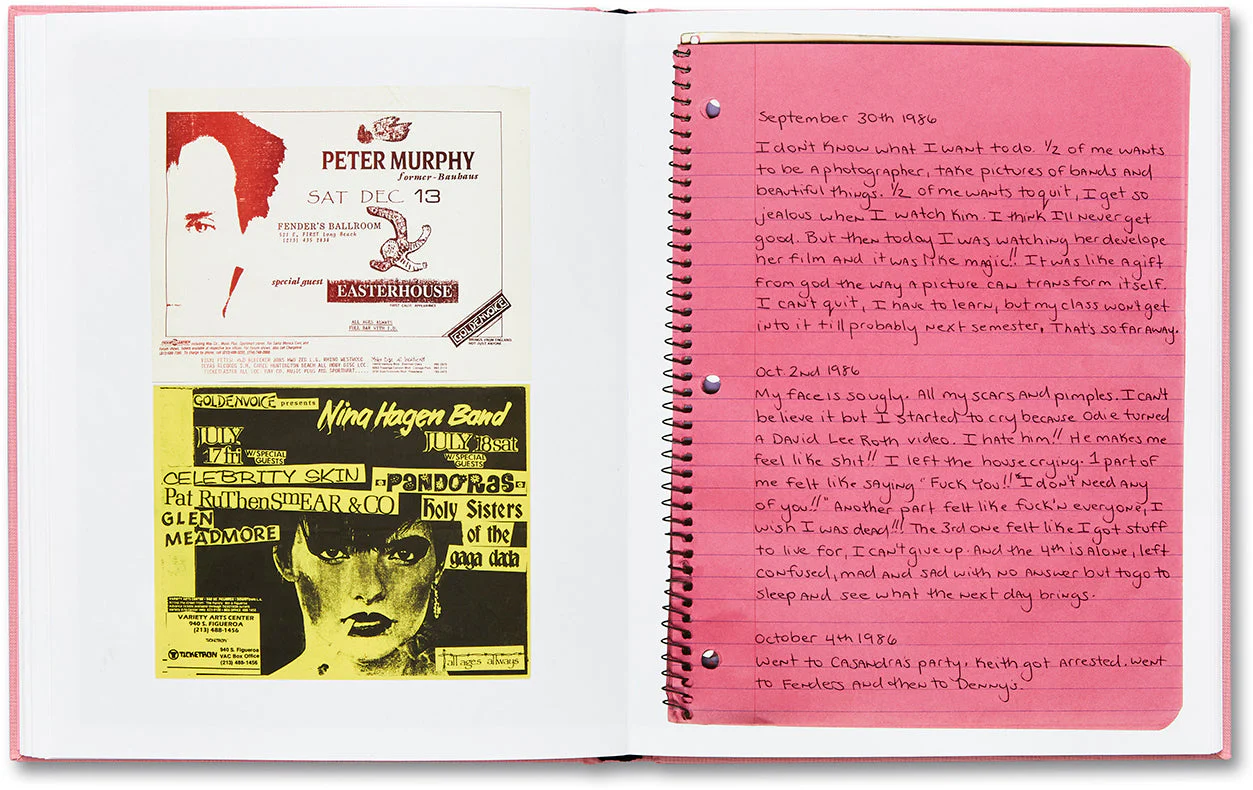 PETER MURPHY
former-Bauhaus
SAT DEC 13
FENDER'S BALLROOM
521 E. FIRST Long Beach
(213) 435 2834
special guest EASTERHOUSE
FIRST CALIF. APPEARANCE
ALL AGES ALWAYS
FULL BAR WITH I.D.
GOLDENVOICE
THINGS FROM ENGLAND
NOT JUST ANYONE
GOLDENVOICE presents
Nina Hagen Band
JULY
17 fri
W/SPECIAL
GUESTS
JULY 18 sat
W/SPECIAL
GUESTS
CELEBRITY SKIN
PANDORAS
Pat RuThenSmEAR & CO
GLEN
MEADMORE
Holy Sisters
of the
gaga dada
VARIETY ARTS CENTER
940 S. FIGUEROA
(213) 488-1456
TICKETRON
TICKETRON
940 S. Figueroa
VAC Box Office
(213) 488-1456
all ages always
September 30th 1986
I don't know what I want to do. 1/2 of me wants
to be a photographer, take pictures of bands and
beautiful things. 1/2 of me wants to quit, I get so
jealous when I watch Kim. I think I'll never get
good. But then today I was watching her develope
her film and it was like magic!! It was like a gift
from god the way a picture can transform itself.
I can't quit, I have to learn, but my class won't get
into it till probably next semester, That's so far away.
Oct. 2nd 1986
My face is so ugly. All my scars and pimples. I can't
believe it but I started to cry because Odie turned
a David Lee Roth video. I hate him!! He makes me
feel like shit!! I left the house crying. 1 part of
me felt like saying "Fuck You!!" "I don't need any
of you!!" Another part felt like fuck'n everyone, I
wish I was dead!!! The 3rd one felt like I got stuff
to live for, I can't give up. And the 4th is alone, left
confused, mad and sad with no answer but to go to
sleep and see what the next day brings.
October 4th 1986
Went to Casandra's party. Keith got arrested. Went
to Fenders and then to Denny's.